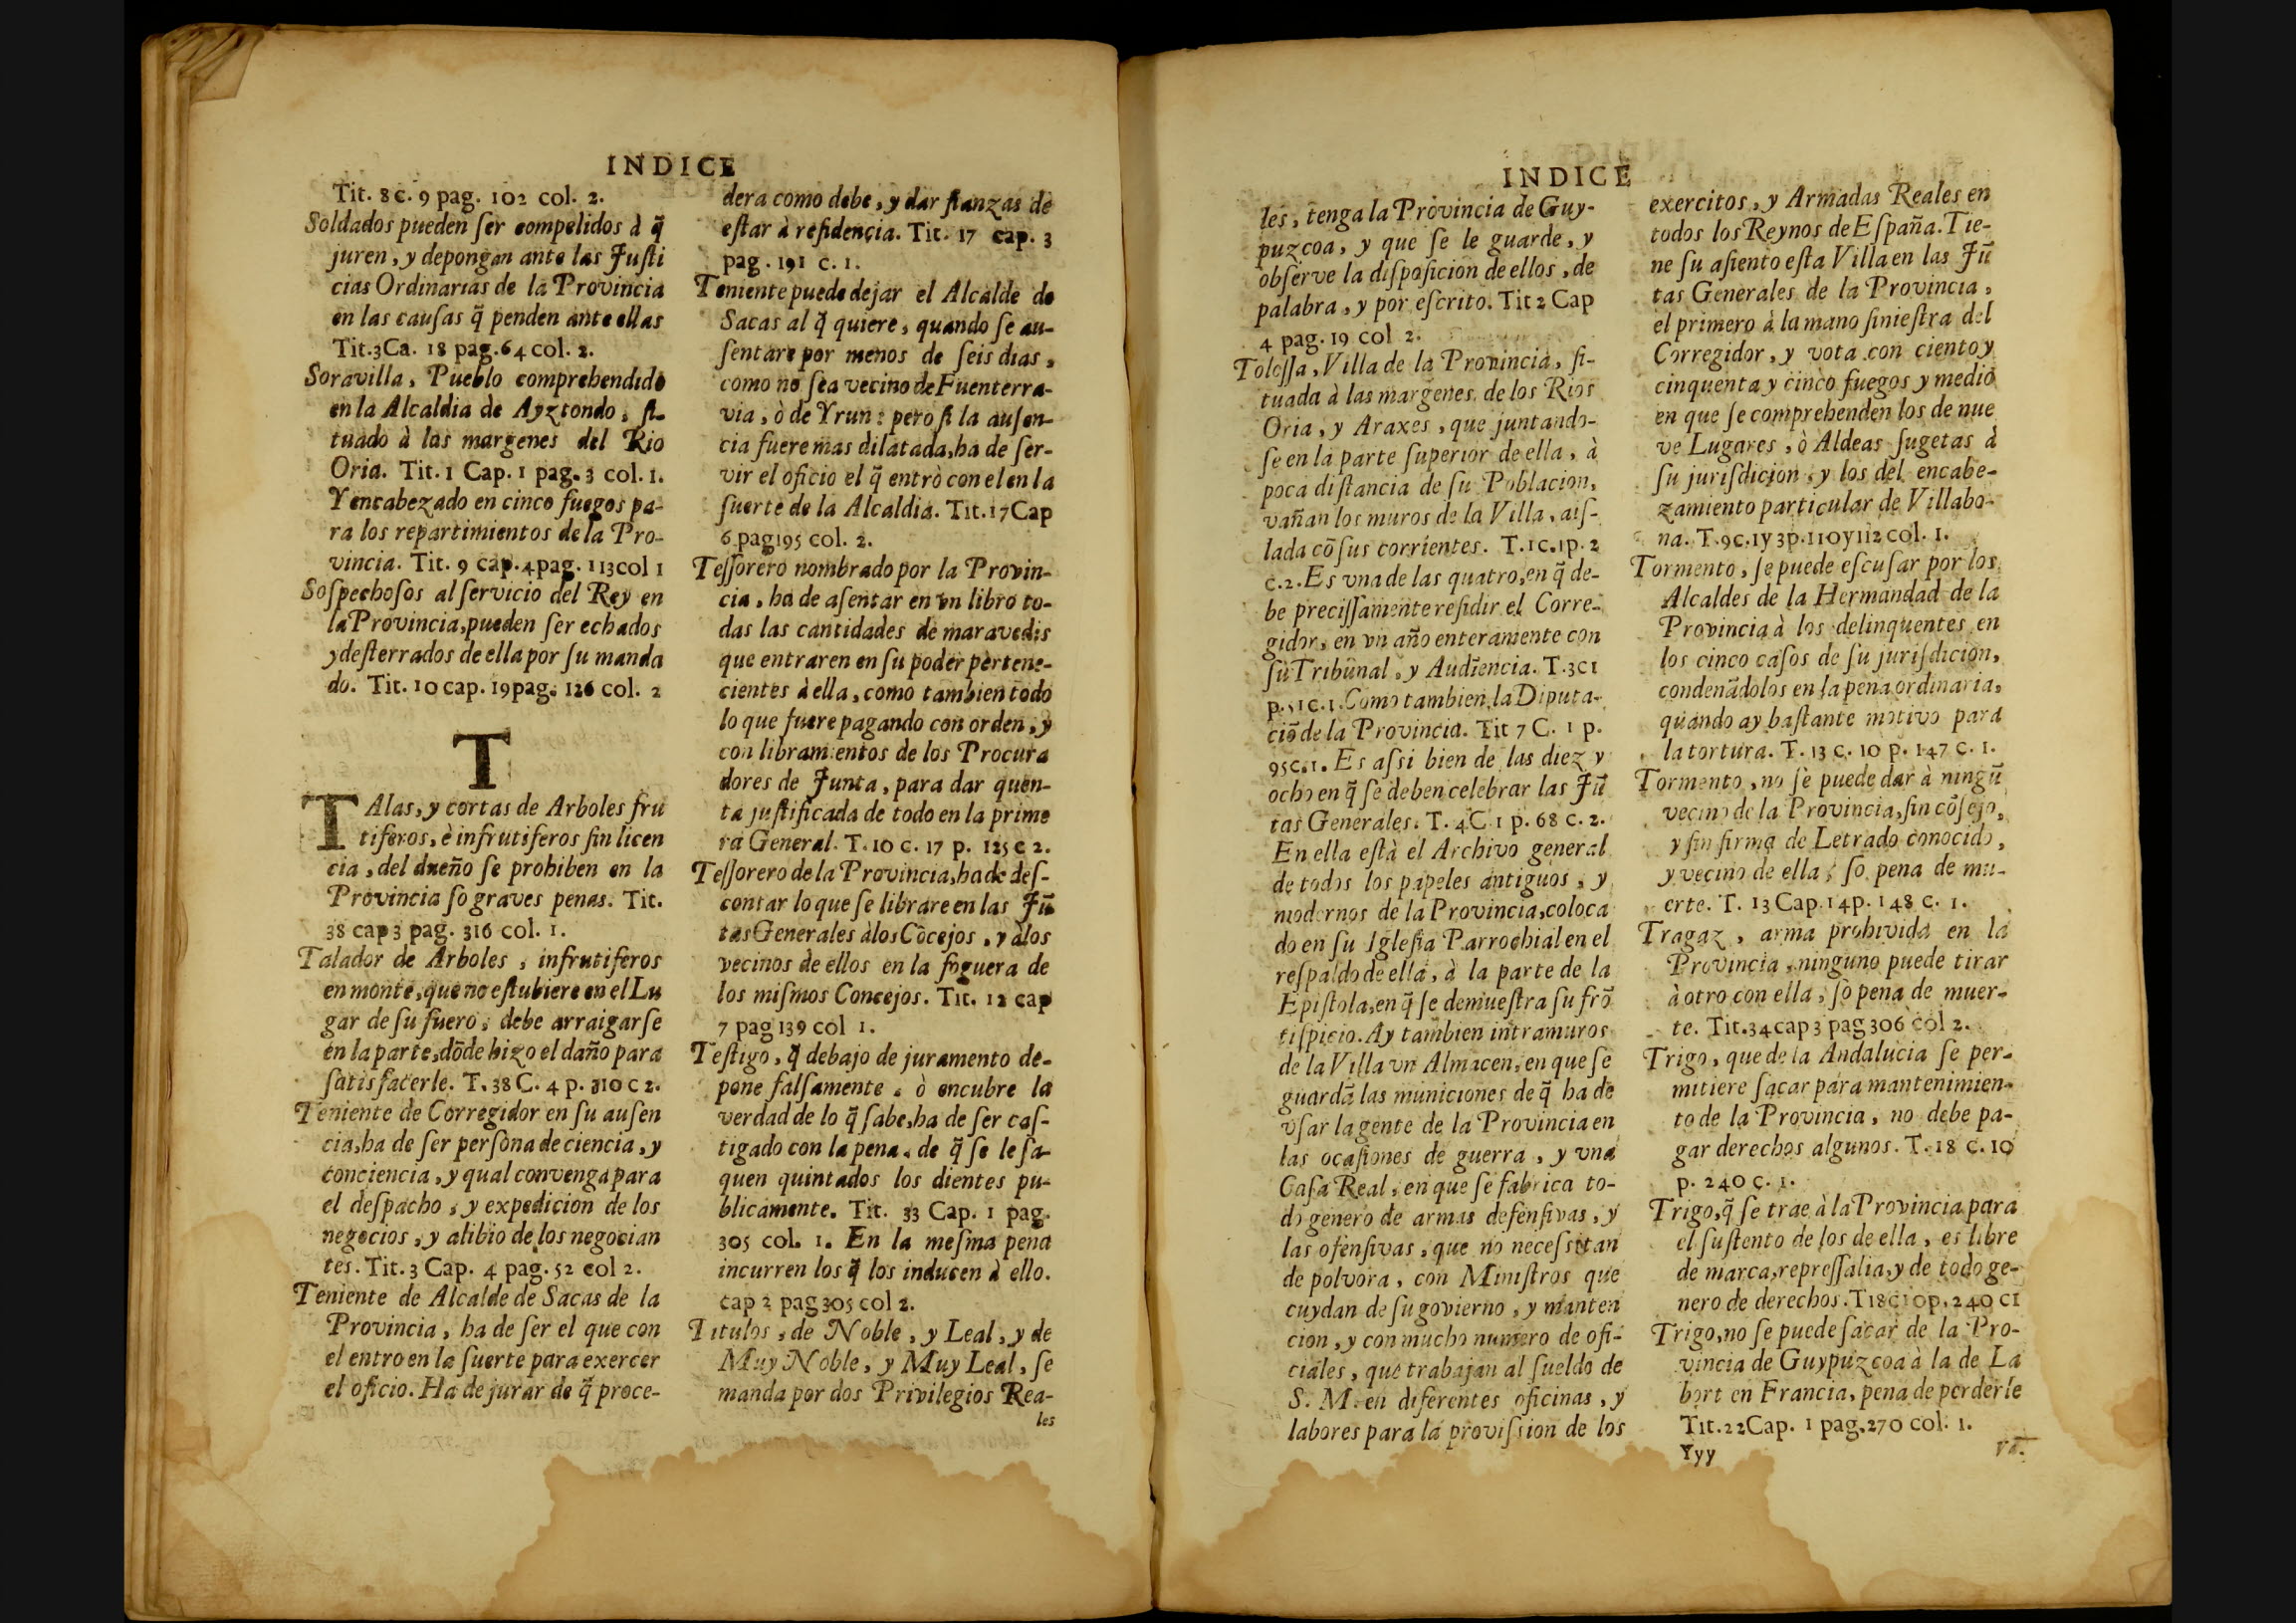 INDICE
Tit. 8 c. 9 pag. 102 col. 2.
Soldados pueden ſer compelidos à q̃
juren, y depongan ante las Juſti
cias Ordinarias de la Provincia
en las cauſas q̃ penden ante ellas
Tit.3Ca. 18 pag.64 col. 2.
Soravilla, Pueblo comprehendido
en la Alcaldia de Ayztondo, ſi-
tuado à las margenes del Rio
Oria. Tit. 1 Cap. 1 pag. 3 col. 1.
Y encabezado en cinco fuegos pa-
ra los repartimientos de la Pro-
vincia. Tit. 9 cap.4pag. 113col 1
Soſpechoſos al ſervicio del Rey en
la Provincia,pueden ſer echados
y deſterrados de ella por ſu manda
do. Tit. 10 cap. 19pag. 126 col. 2
T
TAlas, y cortas de Arboles fru
tiferos, è infrutiferos ſin licen
cia, del dueño ſe prohiben en la
Provincia ſo graves penas. Tit.
38 cap 3 pag. 316 col. 1.
Talador de Arboles, infrutiferos
en monte, que no eſtubiere en el Lu
gar de ſu fuero, debe arraigarſe
en la parte,dõde hizo el daño para
ſatisfacerle. T. 38 C. 4 p. 310 c 2.
Teniente de Corregidor en ſu auſen
cia,ha de ſer perſona de ciencia, y
conciencia, y qual convenga para
el deſpacho, y expedicion de los
negocios, y alibio de los negocian
tes. Tit. 3 Cap. 4 pag. 52 col 2.
Teniente de Alcalde de Sacas de la
Provincia, ha de ſer el que con
el entro en la ſuerte para exercer
el oficio. Ha de jurar de q̃ proce-
dera como debe, y dar fianzas de
eſtar à reſidencia. Tit. 17 cap. 3
pag. 191 c. 1.
Teniente puede dejar el Alcalde de
Sacas al q̃ quiere, quando ſe au-
ſentare por menos de ſeis dias,
como no ſea vecino de Fuenterra-
via, ò de Yrun: pero ſi la auſen-
cia fuere mas dilatada,ha de ſer-
vir el oficio el q̃ entrò con el en la
ſuerte de la Alcaldia. Tit.17Cap
6 pag195 col. 2.
Teſſorero nombrado por la Provin-
cia, ha de aſentar en vn libro to-
das las cantidades de maravedis
que entraren en ſu poder pertene-
cientes à ella, como tambien todo
lo que fuere pagando con orden, y
con libramientos de los Procura
dores de Junta, para dar quen-
ta juſtificada de todo en la prime
ra General. T. 10 c. 17 p. 125 c 2.
Teſſorero de la Provincia,ha de deſ-
contar lo que ſe librare en las Jũ
tas Generales à los Cõcejos, y à los
vecinos de ellos en la foguera de
los miſmos Concejos. Tit. 12 cap
7 pag 139 col 1.
Teſtigo, q̃ debajo de juramento de-
pone falſamente, ò encubre la
verdad de lo q̃ ſabe,ha de ſer caſ-
tigado con la pena, de q̃ ſe le ſa-
quen quintados los dientes pu-
blicamente. Tit. 33 Cap. 1 pag.
305 col. 1. En la meſma pena
incurren los q̃ los inducen à ello.
cap 2 pag 305 col 2.
Titulos, de Noble, y Leal, y de
Muy Noble, y Muy Leal, ſe
manda por dos Privilegios Rea-
les
INDICE
les, tenga la Provincia de Guy-
puzcoa, y que ſe le guarde, y
obſerve la diſpoſicion de ellos, de
palabra, y por eſcrito. Tit 2 Cap
4 pag. 19 col 2.
Toloſſa, Villa de la Provincia, ſi-
tuada à las margenes de los Rios
Oria, y Araxes, que juntando-
ſe en la parte ſuperior de ella, à
poca diſtancia de ſu Poblacion,
vañan los muros de la Villa, aiſ-
lada cõ ſus corrientes. T.1C.1p. 2
c.2. Es vna de las quatro,en q̃ de-
be preciſſamente reſidir el Corre-
gidor, en vn año enteramente con
ſu Tribunal, y Audiencia. T.3C1
p.51c.1. Como tambien la Diputa-
ciõ de la Provincia. Tit 7 C. 1 p.
95c.1. Es aſsi bien de las diez y
ocho en q̃ ſe deben celebrar las Jũ
tas Generales. T. 4C 1 p. 68 c. 2.
En ella eſtà el Archivo general
de todos los papeles antiguos, y
modernos de la Provincia,coloca
do en ſu Igleſia Parrochial en el
reſpaldo de ella, à la parte de la
Epiſtola,en q̃ ſe demueſtra ſu frõ
tiſpicio. Ay tambien intramuros
de la Villa vn Almacen, en que ſe
guardã las municiones de q̃ ha de
vſar la gente de la Provincia en
las ocaſiones de guerra, y vna
Caſa Real, en que ſe fabrica to-
do genero de armas defenſivas, y
las ofenſivas, que no neceſsitan
de polvora, con Miniſtros que
cuydan de ſu govierno, y manten
cion, y con mucho numero de ofi-
ciales, que trabajan al ſueldo de
S. M. en diferentes oficinas, y
labores para la proviſsion de los
exercitos, y Armadas Reales en
todos los Reynos de Eſpaña. Tie-
ne ſu aſiento eſta Villa en las Jũ
tas Generales de la Provincia,
el primero à la mano ſinieſtra del
Corregidor, y vota con ciento y
cinquenta y cinco fuegos y medio
en que ſe comprehenden los de nue
ve Lugares, ò Aldeas ſugetas à
ſu juriſdicion, y los del encabe-
zamiento particular de Villabo-
na. T.9c.1y 3p.110y112 col. 1.
Tormento, ſe puede eſcuſar por los
Alcaldes de la Hermandad de la
Provincia à los delinquentes en
los cinco caſos de ſu juriſdicion,
condenãdolos en la pena ordinaria,
quando ay baſtante motivo para
la tortura. T. 13 c. 10 p. 147 c. 1.
Tormento, no ſe puede dar à ningũ
vecino de la Provincia,ſin cõſejo,
y ſin firma de Letrado conocido,
y vecino de ella, ſo pena de mu-
erte. T. 13 Cap.14p. 148 c. 1.
Tragaz, arma prohivida en la
Provincia, ninguno puede tirar
à otro con ella, ſo pena de muer-
te. Tit.34cap 3 pag 306 col 2.
Trigo, que de la Andalucia ſe per-
mitiere ſacar para mantenimien-
to de la Provincia, no debe pa-
gar derechos algunos. T. 18 c. 10
p. 240 c. 1.
Trigo,q̃ ſe trae à la Provincia para
el ſuſtento de los de ella, es libre
de marca,repreſſalia,y de todo ge-
nero de derechos. T18C10p.240 c1
Trigo,no ſe puede ſacar de la Pro-
vincia de Guypuzcoa à la de La
bort en Francia, pena de perderle
Tit.22Cap. 1 pag.270 col. 1.
Yyy